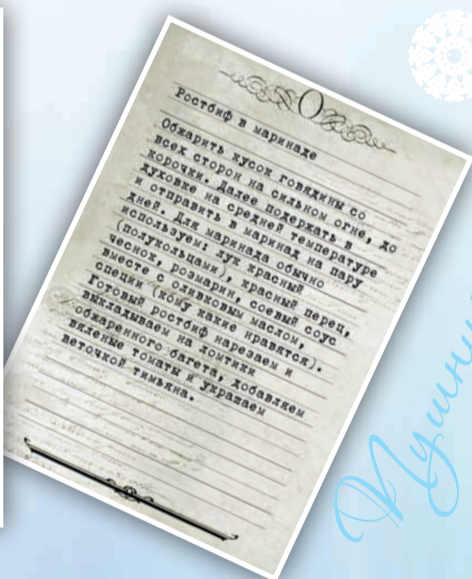 Ростбиф в маринаде
Обжарить кусок говядины со
всех сторон на сильном огне, до
корочки. Далее подержать в
духовке на средней температуре
и отправить в маринад на пару
дней. Для маринада обычно
используем: лук красный
(полукольцами), красный перец,
чеснок, розмарин, соевый соус
вместе с оливковым маслом,
специи (кому какие нравятся).
Готовый ростбиф нарезаем и
выкладываем на ломтики
обжаренного багета, добавляем
вяленые томаты и украшаем
веточкой тимьяна.